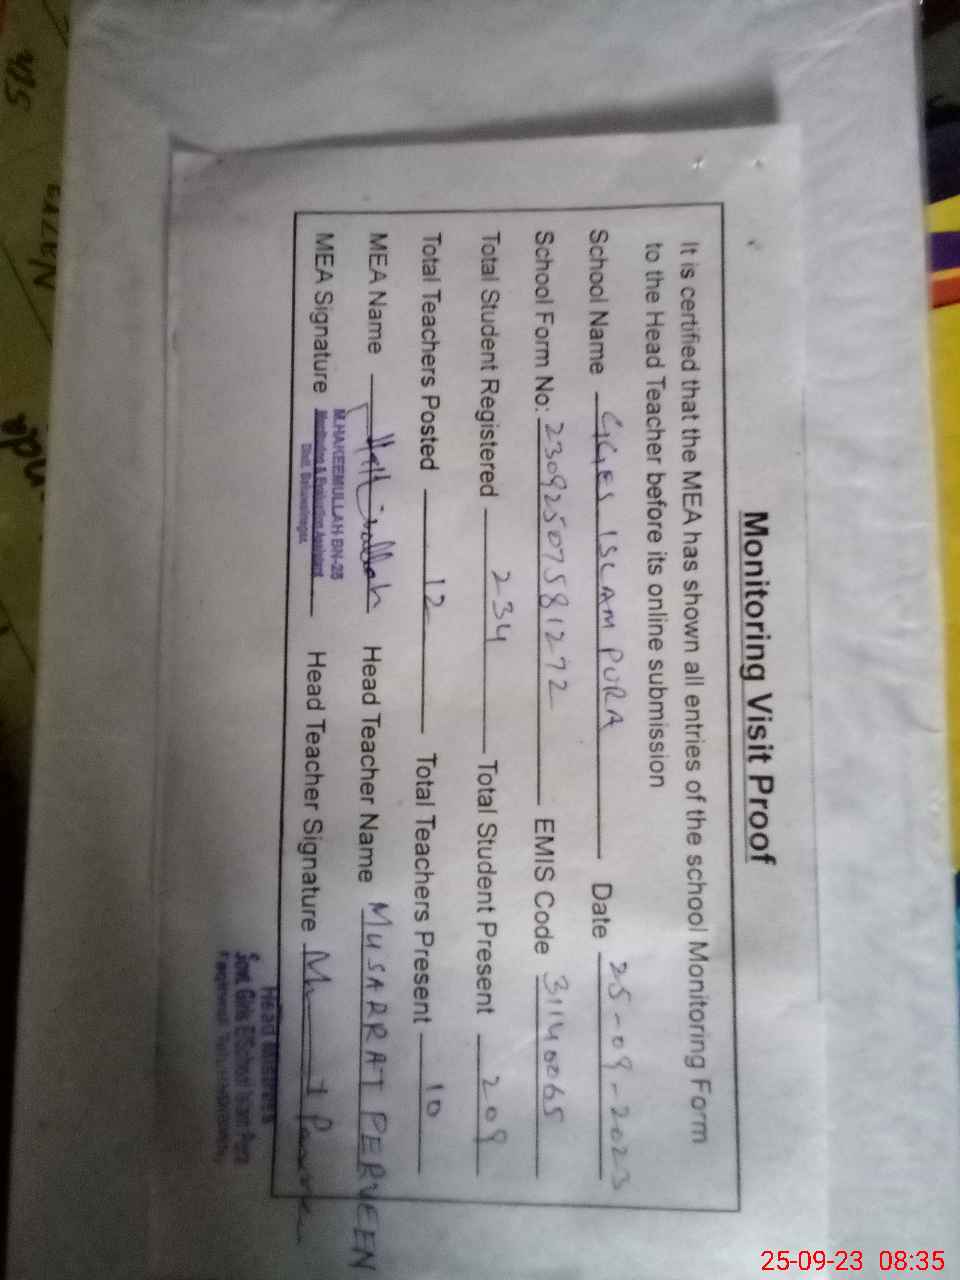 Monitoring Visit Proof
It is certified that the MEA has shown all entries of the school Monitoring Form
to the Head Teacher before its online submission
School Name GGES ISLAM PURA Date 25-09-2023
School Form No: 23092507581272 EMIS Code 31140065
Total Student Registered 234 Total Student Present 209
Total Teachers Posted 12 Total Teachers Present 10
MEA Name Head Teacher Name MUSARRAT PERVEEN
MEA Signature Head Teacher Signature
M.HAKEEMULLAH BN-25
Monitoring & Evaluation Assistant
Distt. Bahawalnagar
Head Mistress
Govt. Girls E/School Islam Pura
25-09-23 08:35